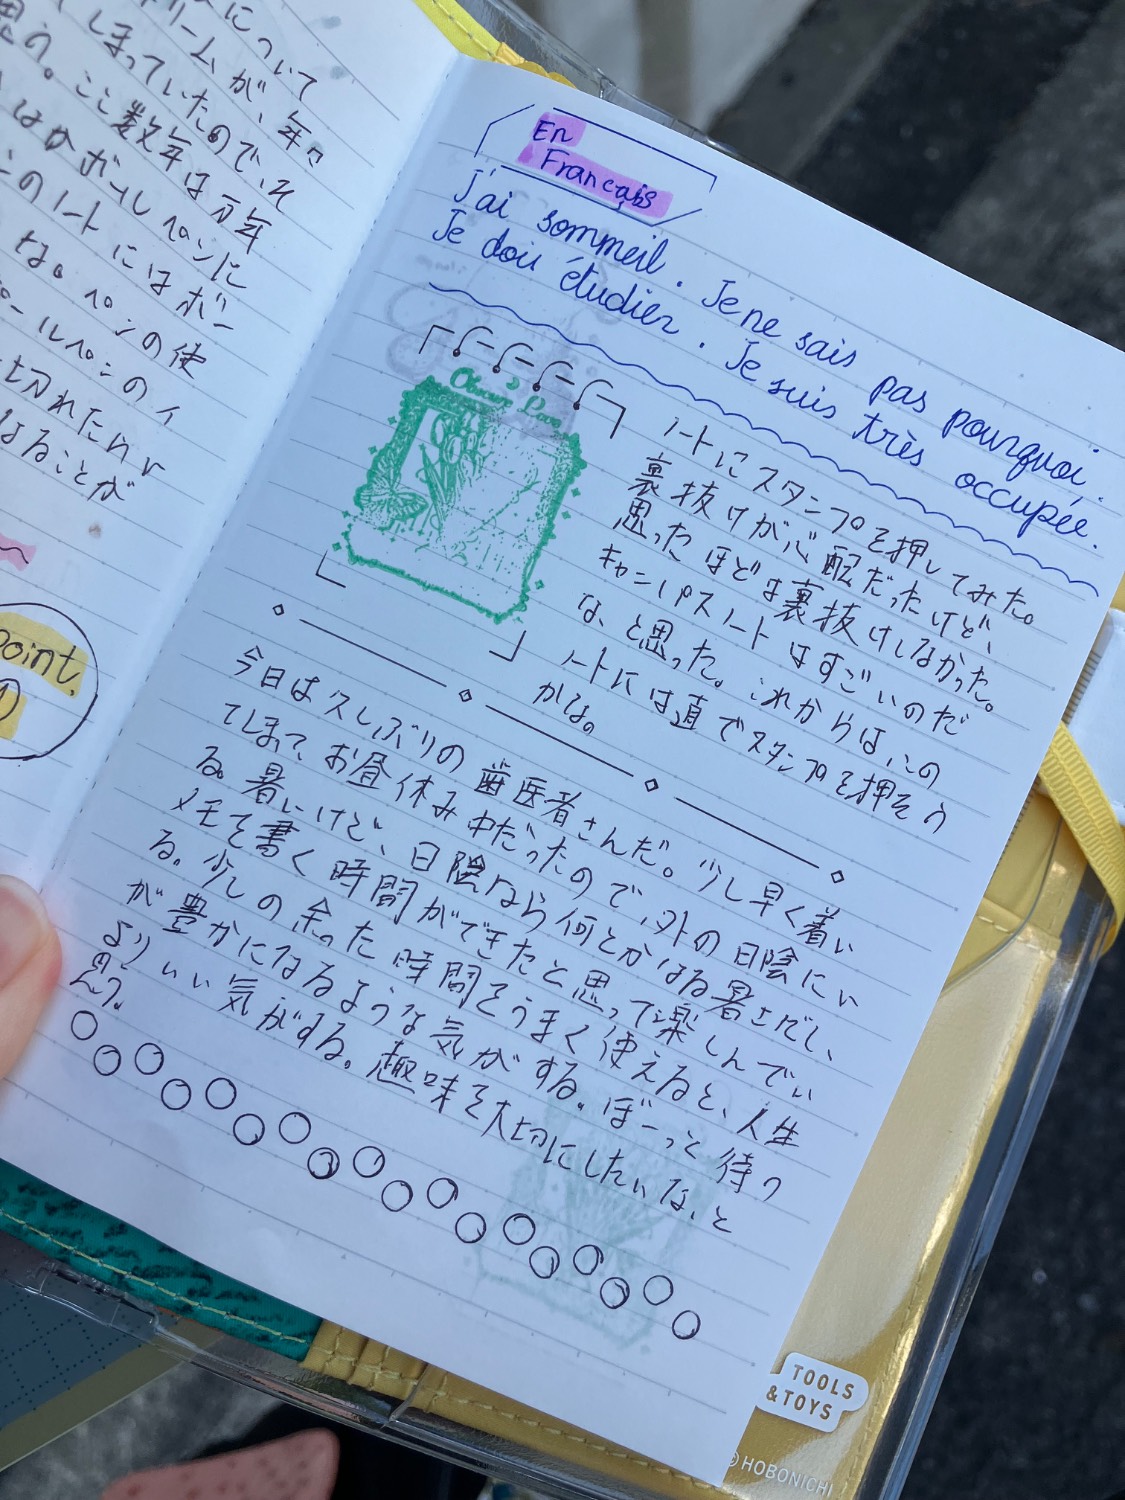 について
リームが、年々
しまっていたので、そ
思う。ここ数年は万年
はかボールペンに
このノートにはボー
な。ペンの使
ールペンのイ
切れたりr
なることが
point.
①
En
Francais
J'ai sommeil. Je ne sais pas pourquoi.
Je doit étudier. Je suis très occupée.
ノートにスタンプを押してみた。
裏抜けが心配だったけど、
思ったほどは裏抜けしなかった。
キャンパスノートはすごいのだ
な、と思った。これからは、この
ノートには直でスタンプを押そう
かな。
今日は久しぶりの歯医者さんだ。少し早く着い
てしまって、お昼休み中だったので、外の日陰にい
る。暑いけど、日陰なら何とかなる暑さだし、
メモを書く時間ができたと思って楽しんでい
る。少しの余った時間をうまく使えると、人生
が豊かになるような気がする。ぼーっと待つ
よりいい気がする。趣味を大切にしたいな、と
思う。
TOOLS
&TOYS
© HOBONICHI